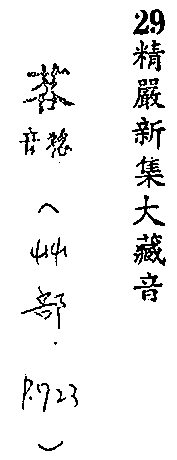 29精嚴新集大藏音
音
(艸部.P.723)